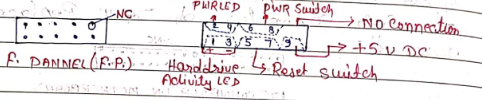 PWRLED PWR Switch
NC
No Connection
2 4 6 8
1 3 5 7 9
+ -
+5V DC
F. PANNEL (F.P.)
Harddrive
Activity LED
Reset switch